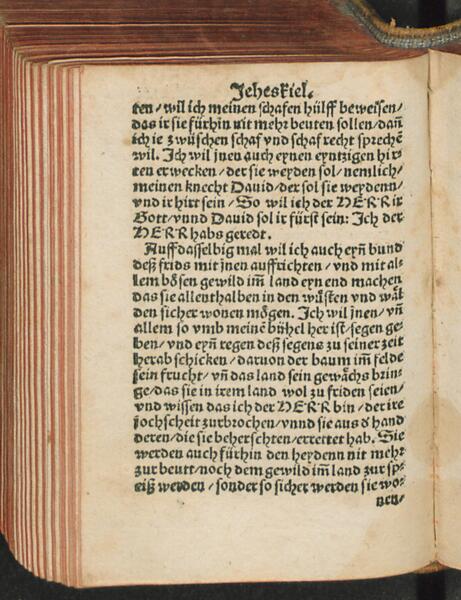 Jeheskiel.
ten/ wil ich meinen schafen hülff beweisen/
das ir sie fürhin nit mehr beuten sollen/ dañ
ich ie zwüschen schaf vnd schaf recht sprechē
wil. Ich wil jnen auch eynen eyntzigen hir⸗
ten erwecken/ der sie weyden sol/ nemlich/
meinen knecht Dauid/ der sol sie weydenn/
vnd ir hirt sein/ So wil ich der HERR ir
Gott/ vnnd Dauid sol ir fürst sein: Ich der
HERR habs geredt.
Auff dasselbig mal wil ich auch eyñ bund
deß frids mit jnen auffrichten/ vnd mit al⸗
lem bösen gewild im̃ land eyn end machen
das sie allenthalben in den wůsten vnd wål
den sicher wonen mögen. Ich wil jnen/ vñ
allem so vmb meinē bühel her ist/ segen ge⸗
ben/ vnd eyñ regen deß segens zu seiner zeit
herab schicken/ daruon der baum im̃ felde
sein frucht/ vñ das land sein gewåchs brin⸗
ge/ das sie in irem land wol zu friden seien/
vnd wissen das ich der HERR bin/ der ire
jochscheit zurbrochen/ vnnd sie aus d̓ hand
deren/ die sie beherschten/ errettet hab. Sie
werden auch fürhin den heydenn nit mehr
zur beutt/ noch dem gewild im̃ land zur sp⸗
eiß werden/ sonder so sicher werden sie wo⸗
nen/